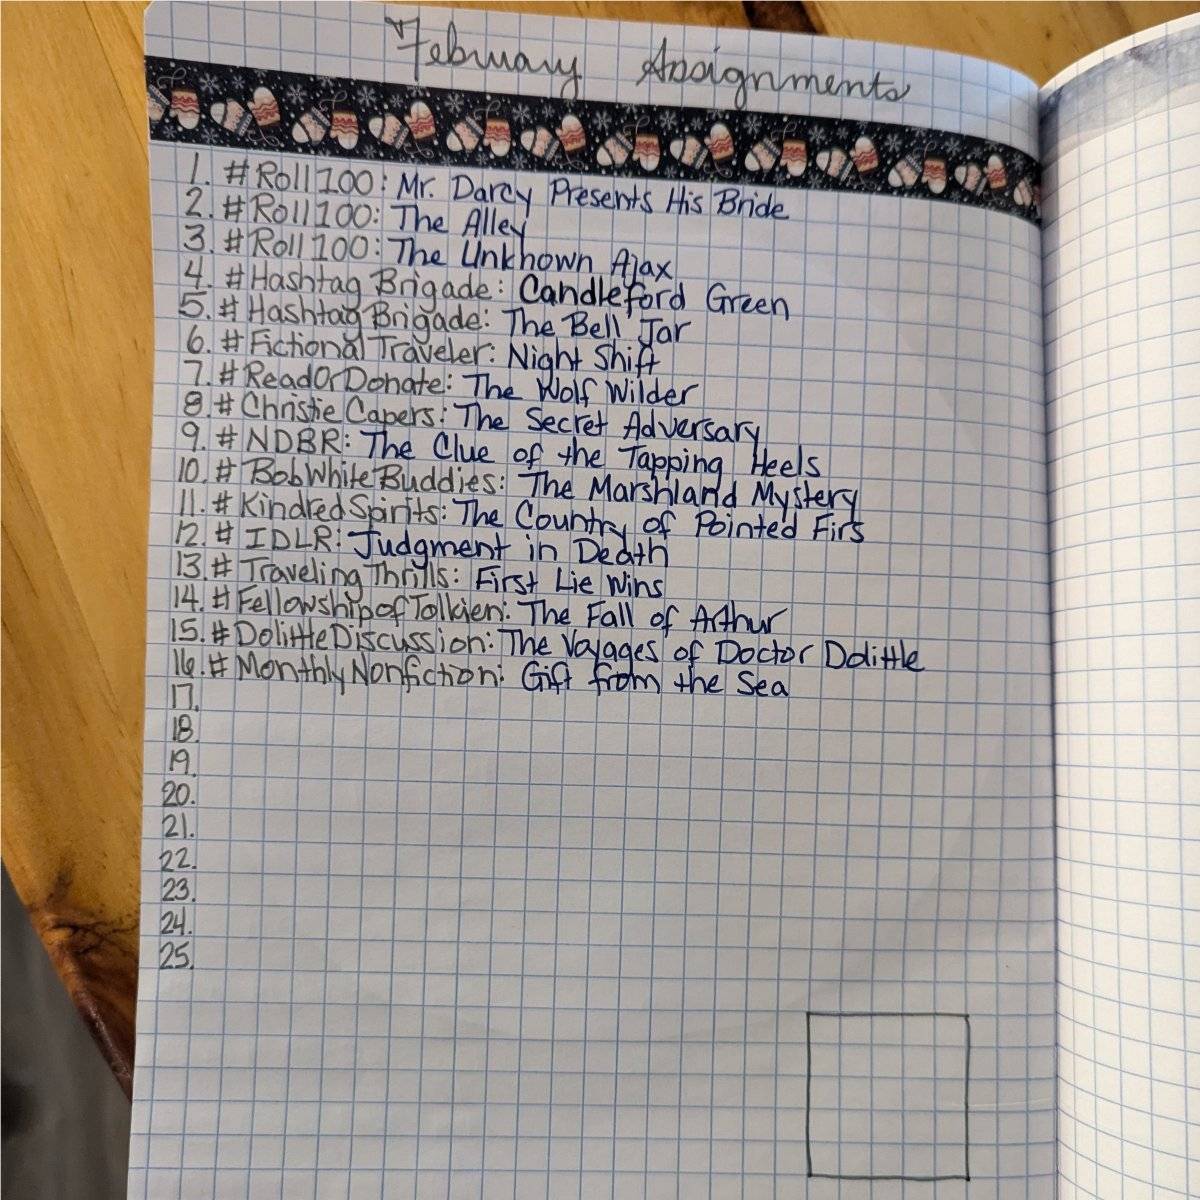 February Assignments
1. #Roll100: Mr. Darcy Presents His Bride
2. #Roll100: The Alley
3. #Roll100: The Unknown Ajax
4. #Hashtag Brigade: Candleford Green
5. #Hashtag Brigade: The Bell Jar
6. #Fictional Traveler: Night Shift
7. #ReadOrDonate: The Wolf Wilder
8. #Christie Capers: The Secret Adversary
9. #NDBR: The Clue of the Tapping Heels
10. #BobWhiteBuddies: The Marshland Mystery
11. #KindredSpirits: The Country of Pointed Firs
12. #IDLR: Judgment in Death
13. #TravelingThrills: First Lie Wins
14. #FellowshipofTolkien: The Fall of Arthur
15. #DolittleDiscussion: The Voyages of Doctor Dolittle
16. #MonthlyNonfiction: Gift from the Sea
17.
18.
19.
20.
21.
22.
23.
24.
25.